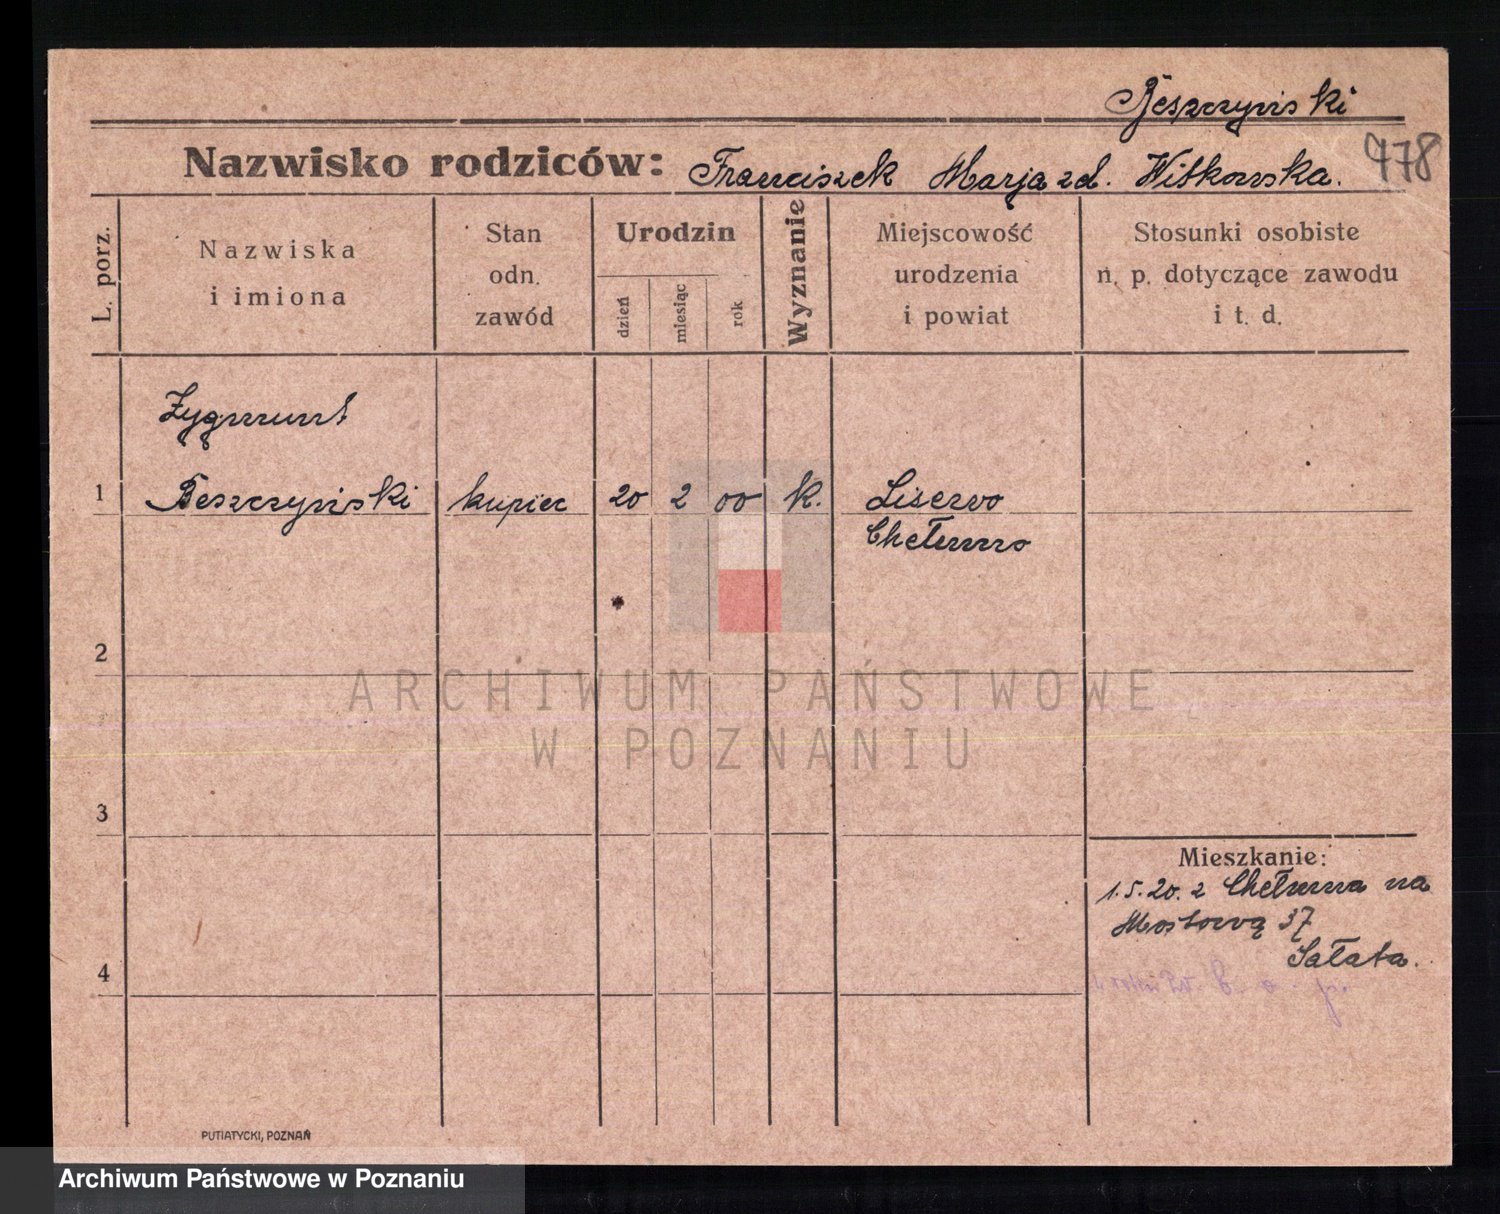 Beszczyński
Nazwisko rodziców: Franciszek Marja zd. Witkowska.
778
L. porz.
Nazwiska
i imiona
Stan
odn.
zawód
Urodzin
dzień
miesiąc
rok
Wyznanie
Miejscowość
urodzenia
i powiat
Stosunki osobiste
n. p. dotyczące zawodu
i t. d.
Zygmunt
1 Beszczyński kupiec 20 2 00 k. Lisewo
Chełmno
2
ARCHIWUM PAŃSTWOWE
W POZNANIU
3
Mieszkanie:
1.5.20. z Chełmna na
Mostową 37
Sałata.
4
PUTIATYCKI, POZNAŃ
Archiwum Państwowe w Poznaniu